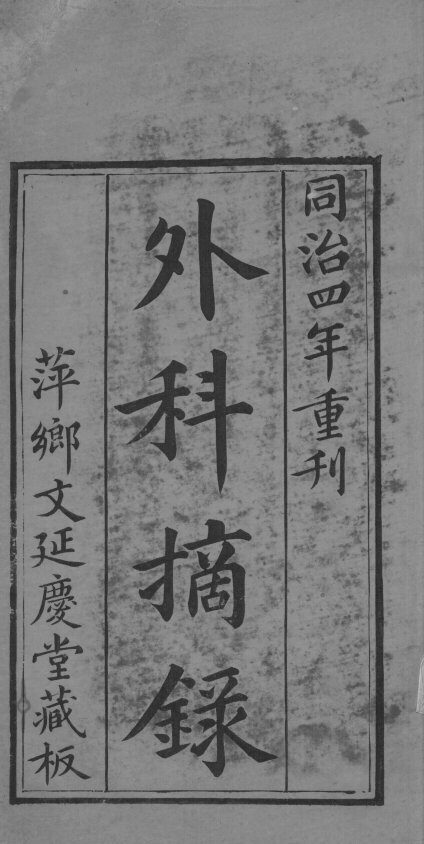 同治四年重刊
外科摘錄
萍鄉文延慶堂藏板